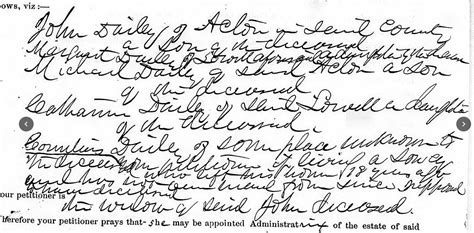 ows, viz :—
John Dailey of Acton in said County
a Son of the deceased
Margaret Dailey of a daughter of the deceased
Michael Dailey of said Acton a Son
of the deceased.
Catharine Dailey of said Lowell a daughter
of the deceased.
Cornelius Dailey of some place unknown to
if living a Son of
the deceased who left his home 18 years ago
and has not been heard from since
our petitioner is the widow of said John deceased.
herefore your petitioner prays that she may be appointed Administratrix of the estate of said